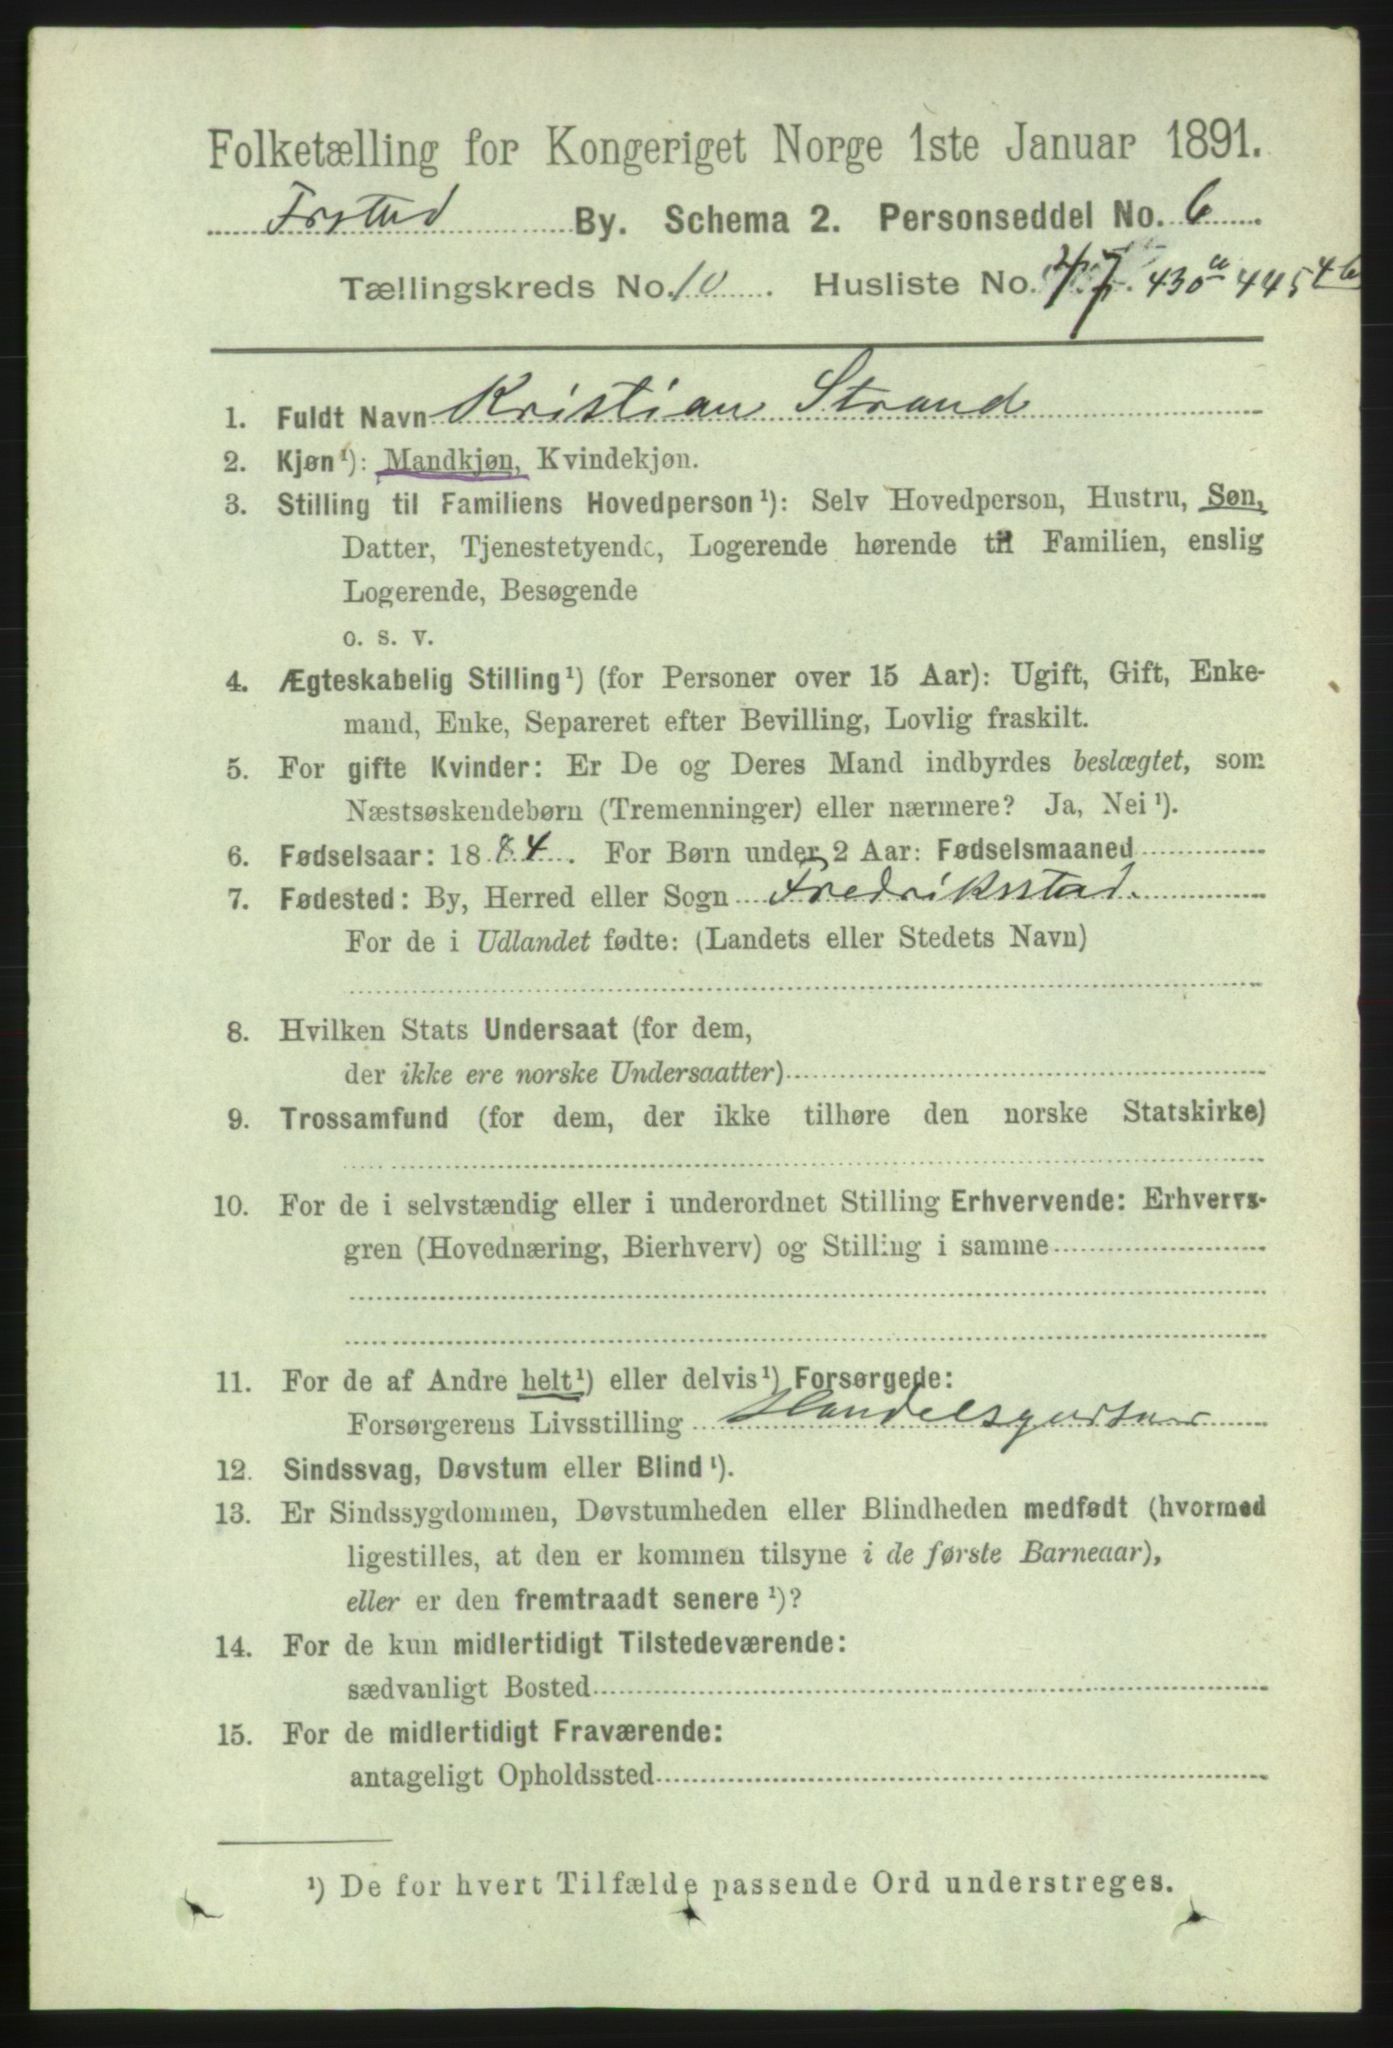 Folketælling for Kongeriget Norge 1ste Januar 1891.
Frstad By. Schema 2. Personseddel No. 6
Tællingskreds No. 10. Husliste No. 47. 430a 445 46
1. Fuldt Navn Kristian Strand
2. Kjøn¹): Mandkjøn, Kvindekjøn.
3. Stilling til Familiens Hovedperson¹): Selv Hovedperson, Hustru, Søn,
Datter, Tjenestetyende, Logerende hørende til Familien, enslig
Logerende, Besøgende
o. s. v.
4. Ægteskabelig Stilling¹) (for Personer over 15 Aar): Ugift, Gift, Enke-
mand, Enke, Separeret efter Bevilling, Lovlig fraskilt.
5. For gifte Kvinder: Er De og Deres Mand indbyrdes beslægtet, som
Næstsøskendebørn (Tremenninger) eller nærmere? Ja, Nei¹).
6. Fødselsaar: 1884. For Børn under 2 Aar: Fødselsmaaned
7. Fødested: By, Herred eller Sogn Fredriksstad.
For de i Udlandet fødte: (Landets eller Stedets Navn)
8. Hvilken Stats Undersaat (for dem,
der ikke ere norske Undersaatter)
9. Trossamfund (for dem, der ikke tilhøre den norske Statskirke)
10. For de i selvstændig eller i underordnet Stilling Erhvervende: Erhvervs-
gren (Hovednæring, Bierhverv) og Stilling i samme
11. For de af Andre helt¹) eller delvis¹) Forsørgede:
Forsørgerens Livsstilling Handelsgartner
12. Sindssvag, Døvstum eller Blind¹).
13. Er Sindssygdommen, Døvstumheden eller Blindheden medfødt (hvormed
ligestilles, at den er kommen tilsyne i de første Barneaar),
eller er den fremtraadt senere¹)?
14. For de kun midlertidigt Tilstedeværende:
sædvanligt Bosted
15. For de midlertidigt Fraværende:
antageligt Opholdssted
¹) De for hvert Tilfælde passende Ord understreges.